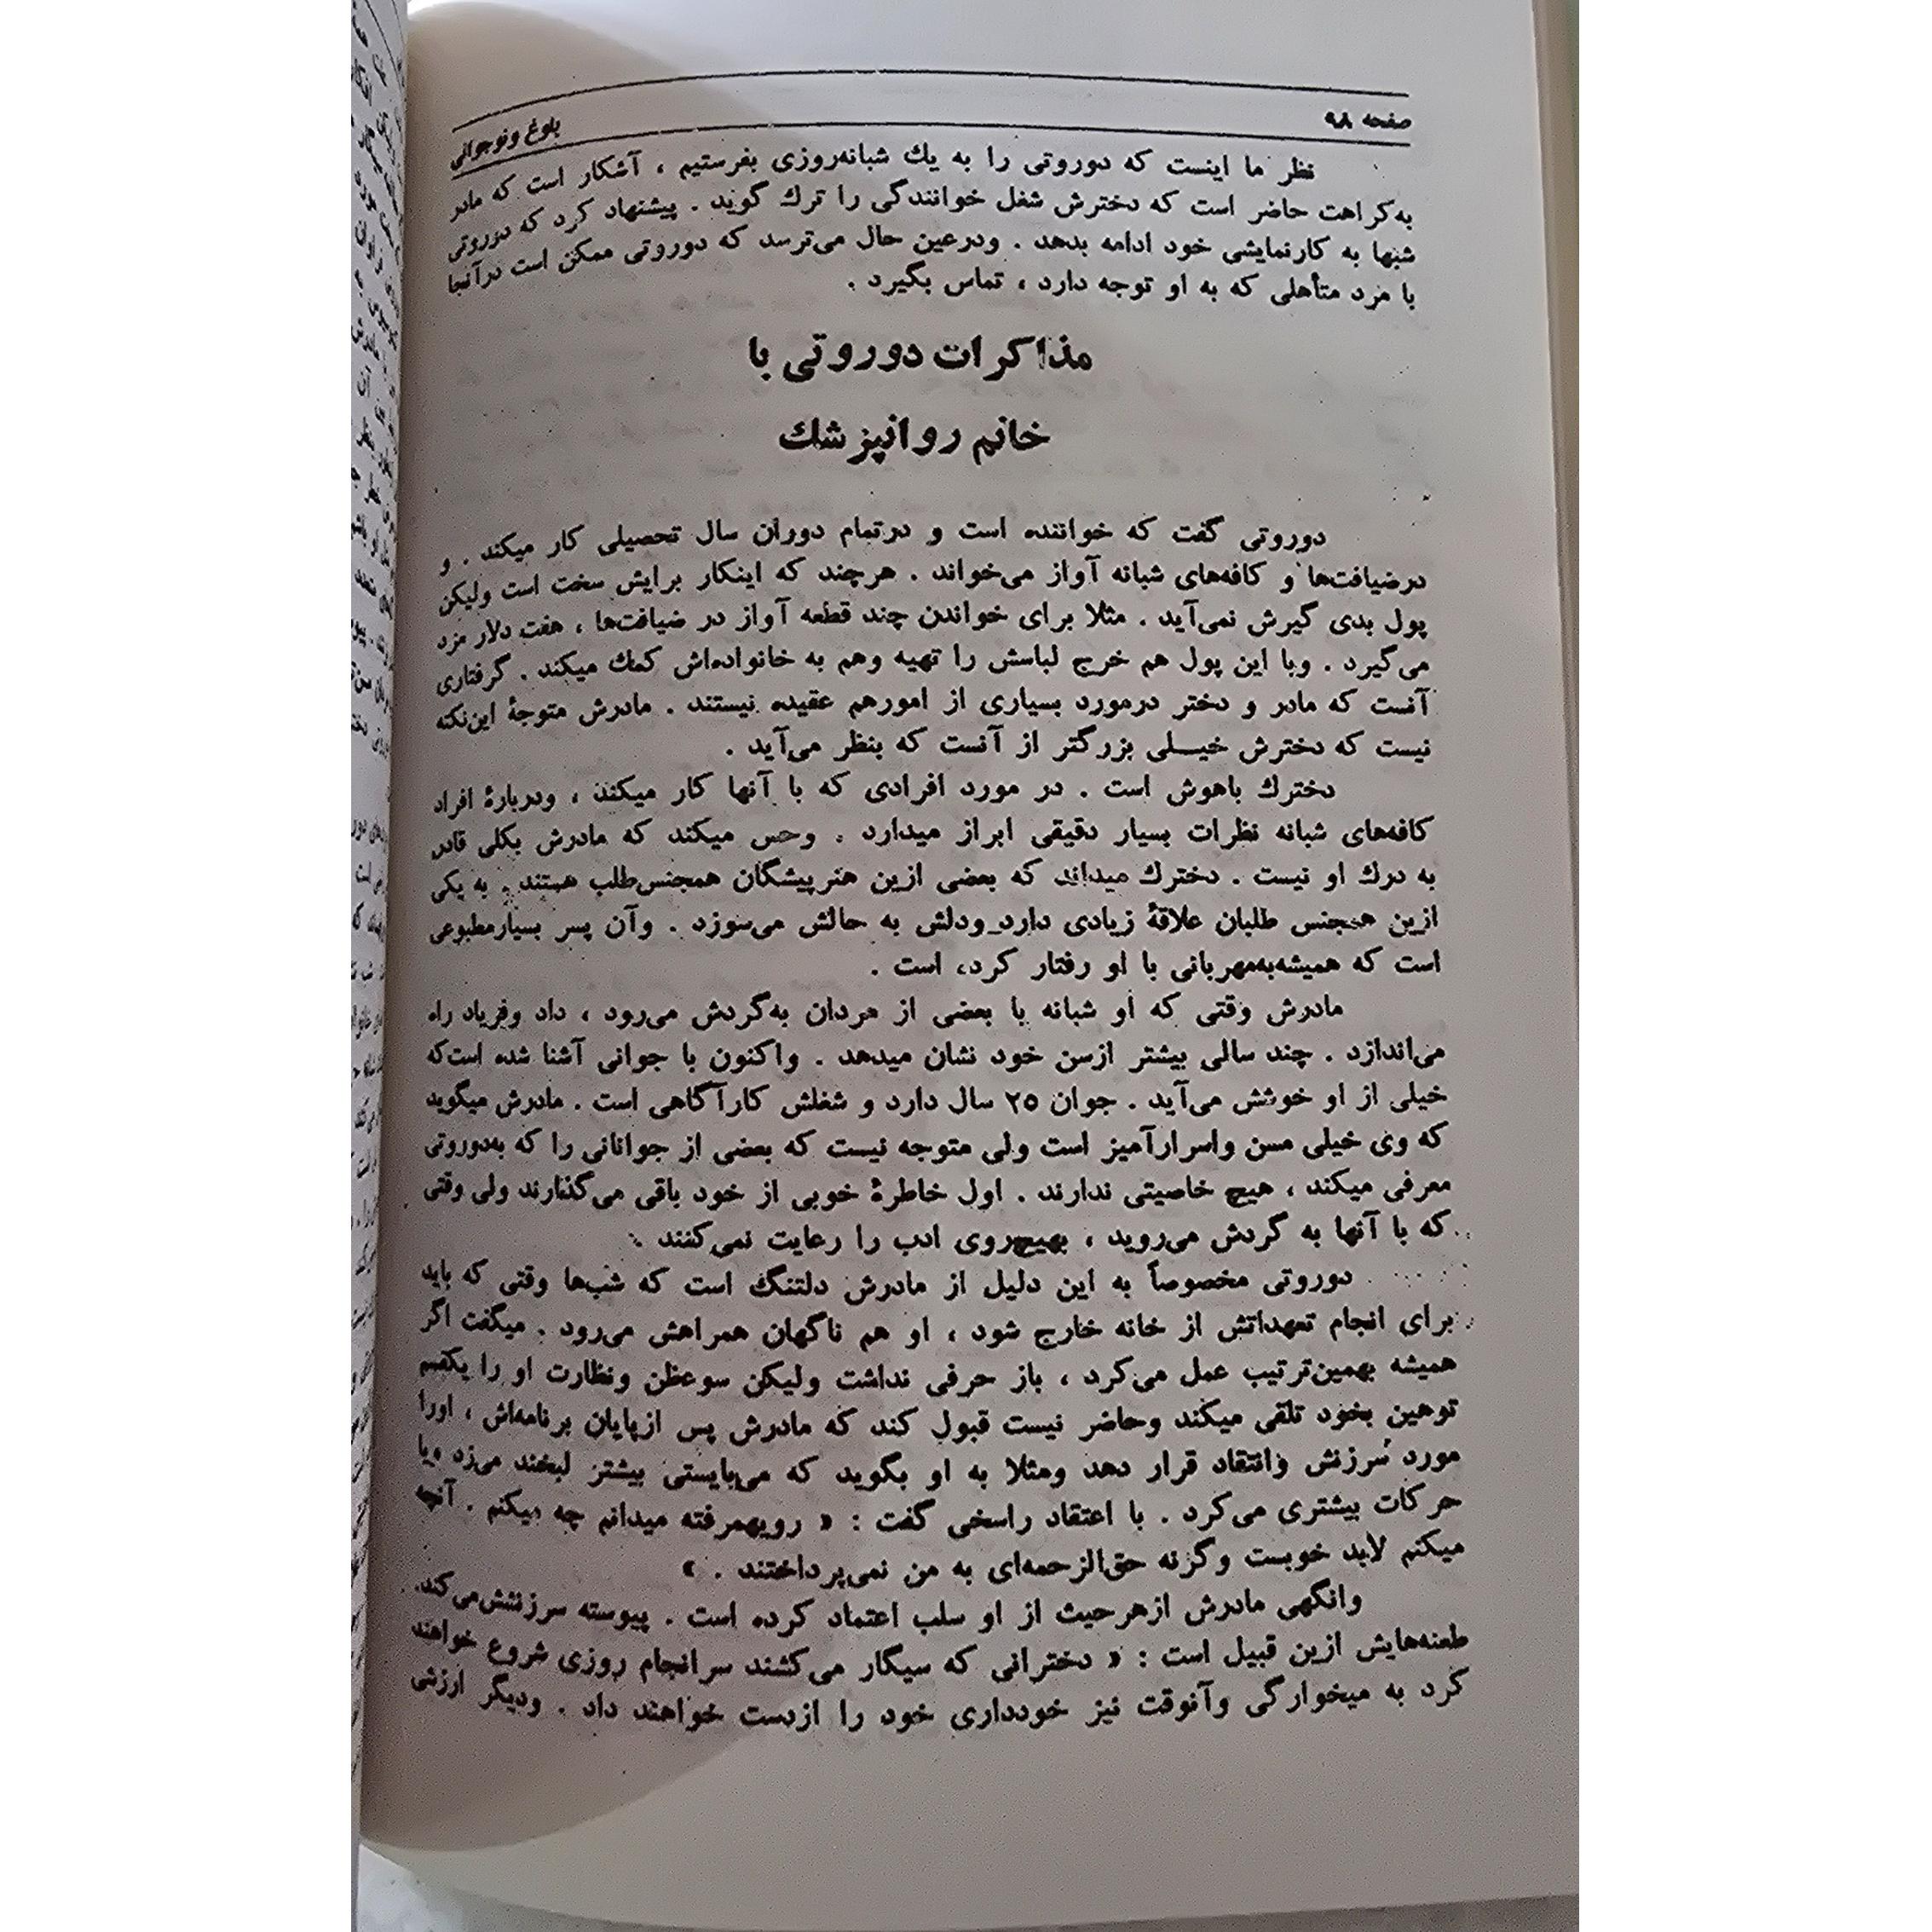 صفحه ۹۸
بلوغ ونوجوانی
نظر ما اینست که دوروتی را به یك شبانه‌روزی بفرستیم ، آشکار است که مادر
به‌کراهت حاضر است که دخترش شغل خوانندگی را ترك گوید . پیشنهاد کرد که دوروتی
شبها به کارنمایشی خود ادامه بدهد . ودرعین حال می‌ترسد که دوروتی ممکن است درآنجا
با مرد متأهلی که به او توجه دارد ، تماس بگیرد .
مذاکرات دوروتی با
خانم روانپزشك
دوروتی گفت که خواننده است و درتمام دوران سال تحصیلی کار میکند . و
درضیافت‌ها و کافه‌های شبانه آواز می‌خواند . هرچند که اینکار برایش سخت است ولیکن
پول بدی گیرش نمی‌آید . مثلا برای خواندن چند قطعه آواز در ضیافت‌ها ، هفت دلار مزد
می‌گیرد . وبا این پول هم خرج لباسش را تهیه وهم به خانواده‌اش کمك میکند . گرفتاری
آنست که مادر و دختر درمورد بسیاری از امورهم عقیده نیستند . مادرش متوجهٔ این‌نکته
نیست که دخترش خیـــلی بزرگتر از آنست که بنظر می‌آید .
دخترك باهوش است . در مورد افرادی که با آنها کار میکند ، ودربارهٔ افراد
کافه‌های شبانه نظرات بسیار دقیقی ابراز میدارد . وحس میکند که مادرش بکلی قادر
به درك او نیست . دخترك میداند که بعضی ازین هنرپیشگان همجنس‌طلب هستند . به یکی
ازین همجنس طلبان علاقهٔ زیادی دارد_ودلش به حالش می‌سوزد . وآن پسر بسیارمطبوعی
است که همیشه‌به‌مهربانی با او رفتار کرده است .
مادرش وقتی که او شبانه با بعضی از مردان به‌گردش می‌رود ، داد وفریاد راه
می‌اندازد . چند سالی بیشتر ازسن خود نشان میدهد . واکنون با جوانی آشنا شده است‌که
خیلی از او خوشش می‌آید . جوان ۲۵ سال دارد و شغلش کارآگاهی است . مادرش میگوید
که وی خیلی مسن واسرارآمیز است ولی متوجه نیست که بعضی از جوانانی را که به‌دوروتی
معرفی میکند ، هیچ خاصیتی ندارند . اول خاطرهٔ خوبی از خود باقی می‌گذارند ولی وقتی
که با آنها به گردش می‌روید ، بهیچ‌روی ادب را رعایت نمی‌کنند .
دوروتی مخصوصاً به این دلیل از مادرش دلتنگ است که شب‌ها وقتی که باید
برای انجام تعهداتش از خانه خارج شود ، او هم ناگهان همراهش می‌رود . میگفت اگر
همیشه بهمین‌ترتیب عمل می‌کرد ، باز حرفی نداشت ولیکن سوءظن ونظارت او را یکقسم
توهین بخود تلقی میکند وحاضر نیست قبول کند که مادرش پس ازپایان برنامه‌اش ، اورا
مورد سرزنش وانتقاد قرار دهد ومثلا به او بگوید که می‌بایستی بیشتر لبخند می‌زد ویا
حرکات بیشتری می‌کرد . با اعتقاد راسخی گفت : « رویهمرفته میدانم چه میکنم . آنچه
میکنم لابد خوبست وگرنه حق‌الزحمه‌ای به من نمی‌پرداختند . »
وانگهی مادرش ازهرحیث از او سلب اعتماد کرده است . پیوسته سرزنشش‌می‌کند.
طعنه‌هایش ازین قبیل است : « دخترانی که سیگار می‌کشند سرانجام روزی شروع خواهند
کرد به میخوارگی وآنوقت نیز خودداری خود را ازدست خواهند داد . ودیگر ارزشی